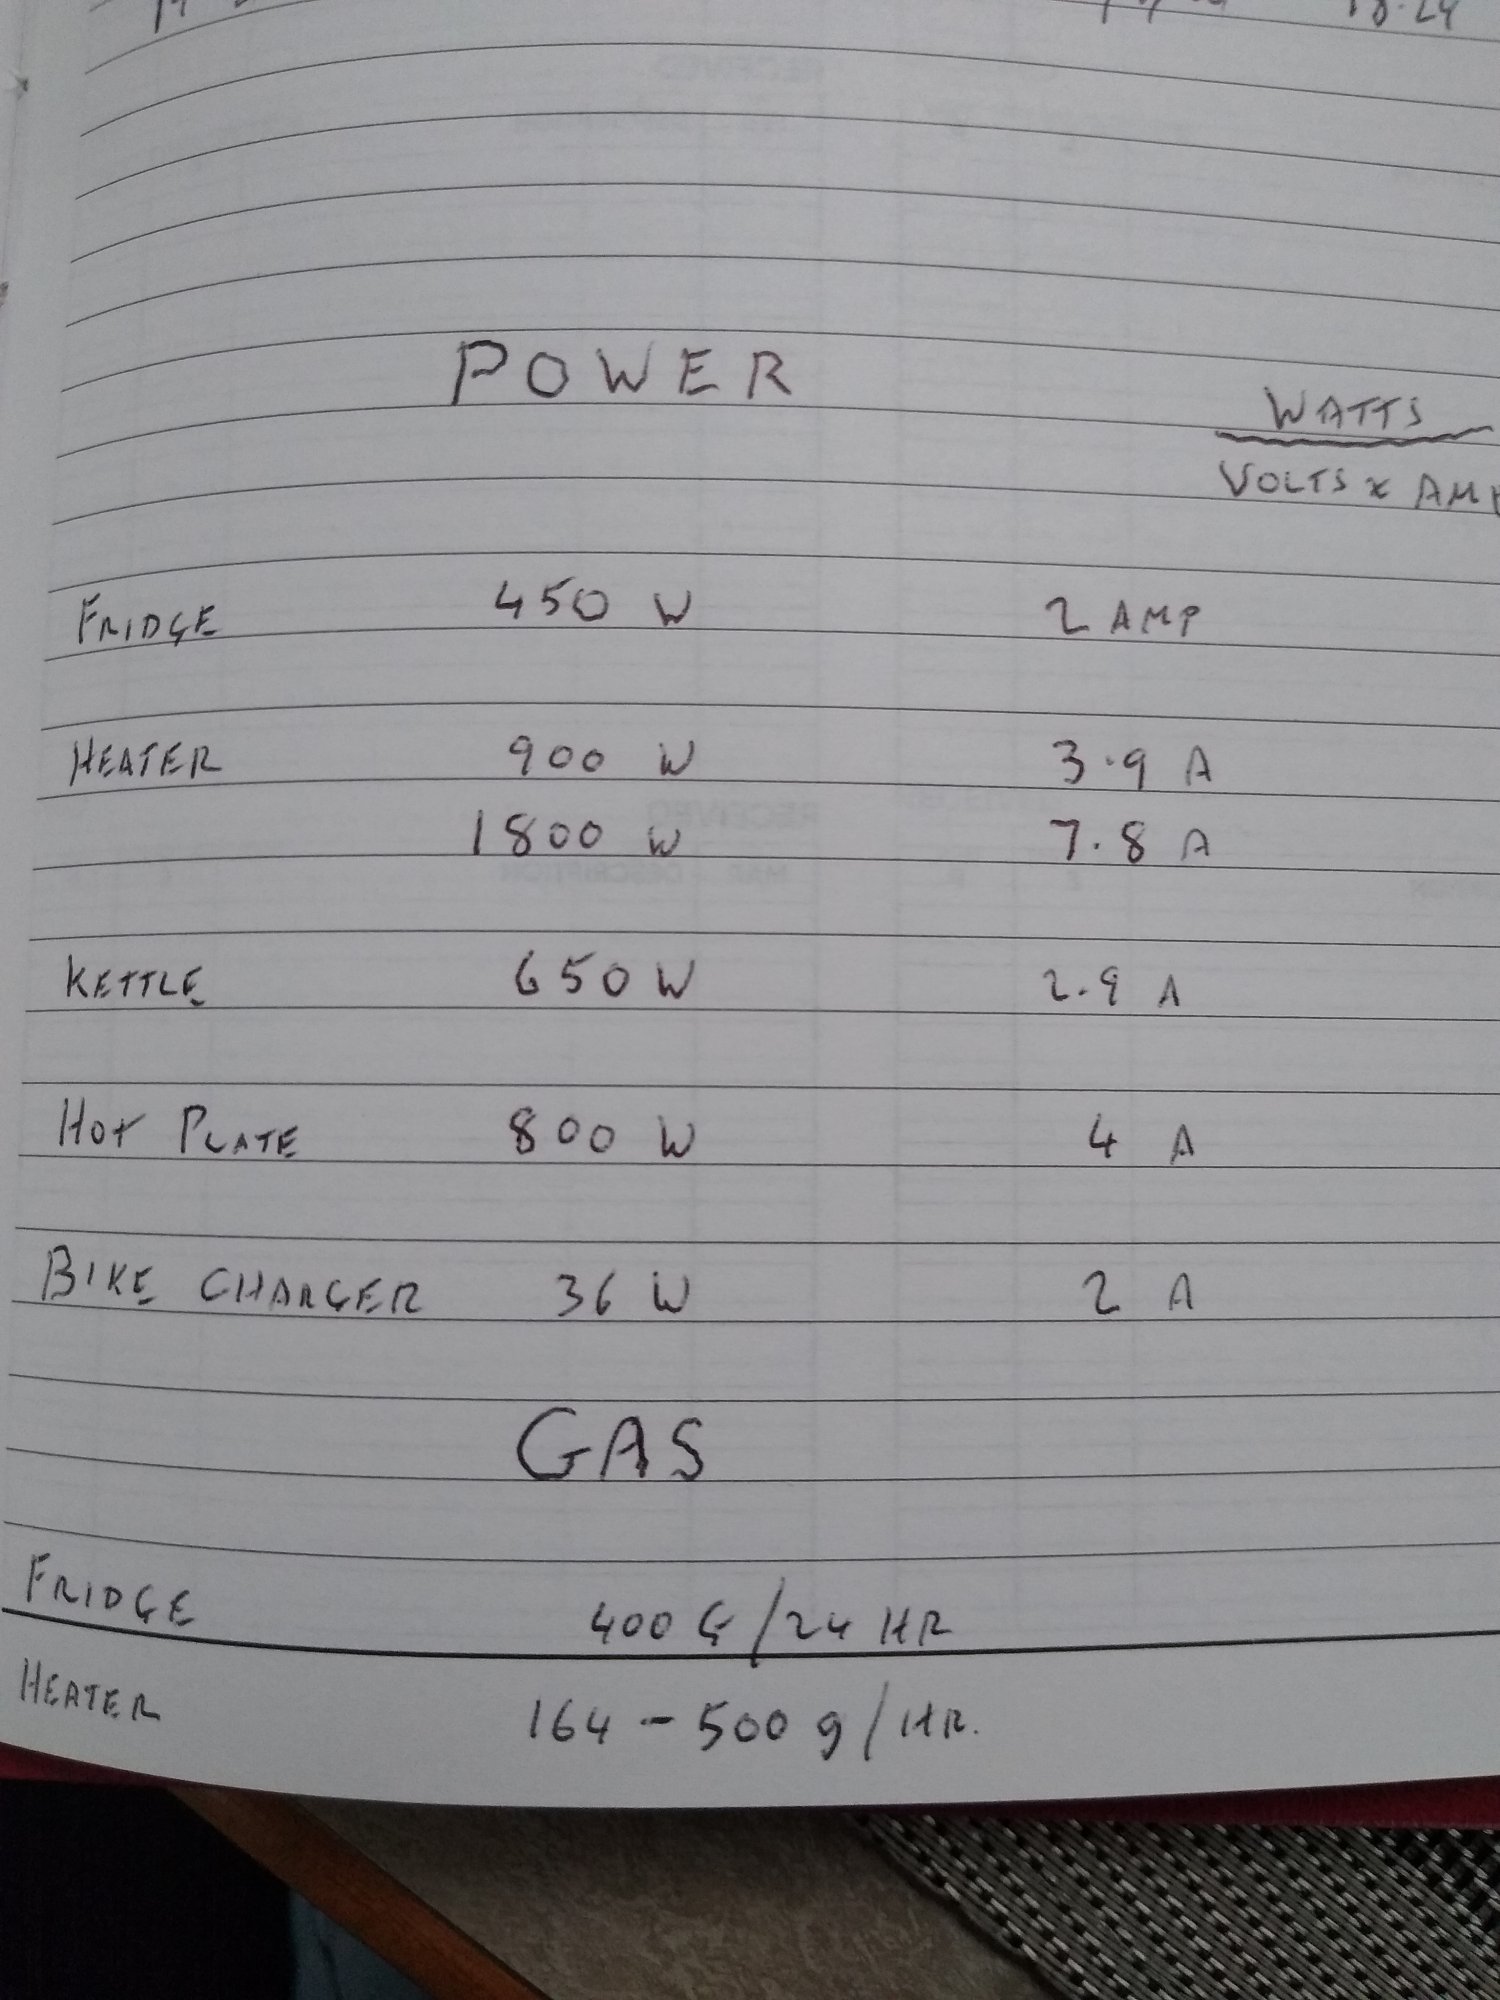 18.24
POWER
WATTS
VOLTS x AMP
FRIDGE 450 W 2 AMP
HEATER 900 W 3.9 A
1800 W 7.8 A
KETTLE 650 W 2.9 A
HOT PLATE 800 W 4 A
BIKE CHARGER 36 W 2 A
GAS
FRIDGE 400 G/24 HR
HEATER 164 - 500 g/HR.